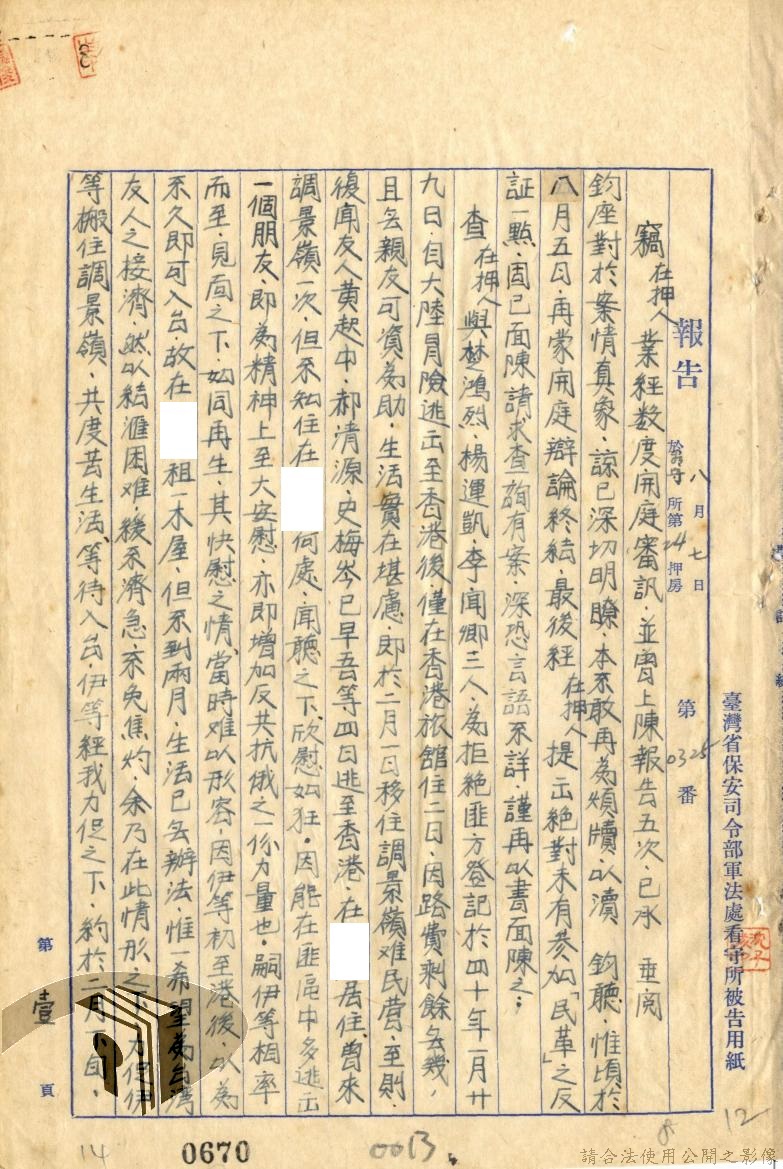 臺灣省保安司令部軍法處看守所被告用紙
報告 八月七日 於 所第24押房 第0325番
竊在押人業經数度開庭審訊．並曾上陳報告五次．已承 垂閱
鈞座對於案情真象．諒已深切明瞭．本不敢再為煩牘．以瀆 鈞聽．惟頃於
八月五日．再蒙開庭辯論終結．最後經在押人提出絕對未有參加「民革」之反
証一點．固已面陳請求查詢有案．深恐言語不詳．謹再以書面陳之：
查在押人與楚鴻烈．楊運凱．李聞卿三人．為拒絕匪方登記於四十年一月廿
九日．自大陸冒險逃出至香港後僅在香港旅館住二日．因路費剩餘無幾．
且無親友可資為助．生活實在堪慮．即於二月一日移住調景嶺难民营．至則．
復聞友人黄起中．郝清源．史梅岑已早吾等四日逃至香港．在 居住．曾來
調景嶺一次．但不知住在 何處．聞聽之下．欣慰如狂．因能在匪區中多逃出
一個朋友．即為精神上至大安慰．亦即增加反共抗俄之一份力量也．嗣伊等相率
而至．見面之下．如同再生．其快慰之情．當時难以形容．因伊等初至港後．以為
不久即可入台．故在 租一木屋．但不到兩月．生活已無辦法惟一希望為台湾
友人之接濟．然以結滙困难．緩不濟急．不免焦灼．余乃在此情形之下．力促伊
等搬住調景嶺．共度苦生活．等待入台．伊等經我力促之下．約於二月下旬．
第壹頁
14
0670
0013
8
12
請合法使用公開之影像